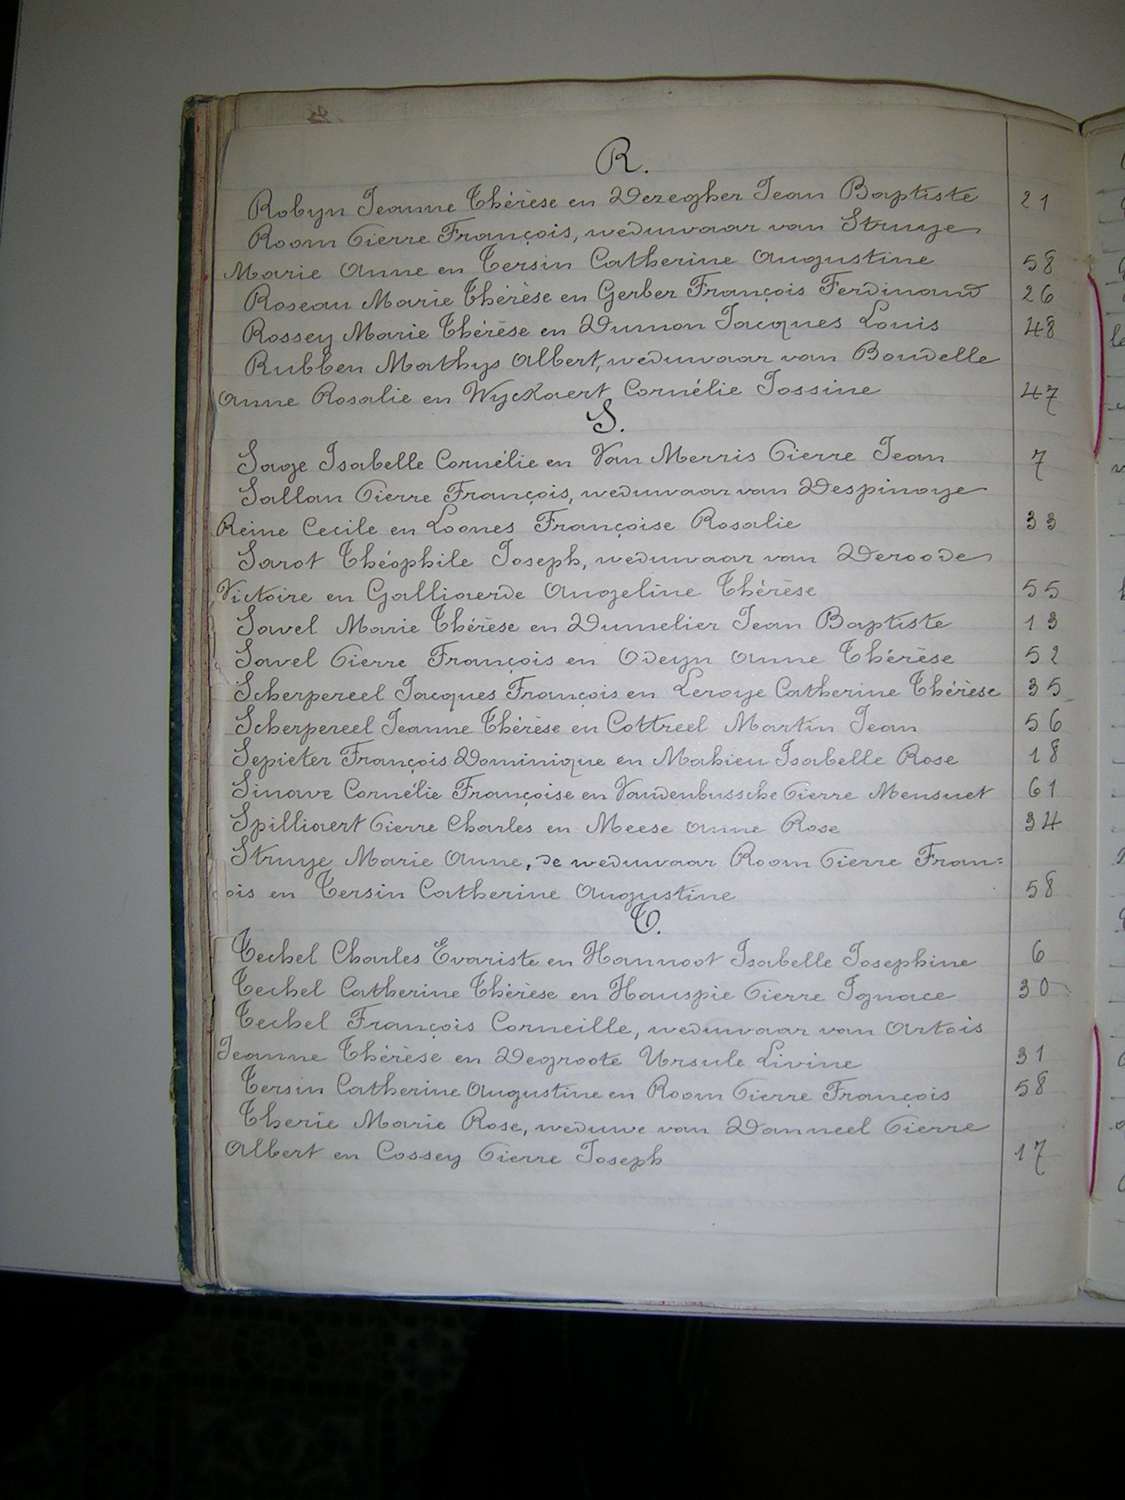 R.
Robyn Jeanne Thérèse en Deregher Jean Baptiste 21
Room Pierre François, weduwaar van Struye
Marie Anne en Tersin Catherine Augustine 58
Roseau Marie Thérèse en Gerber François Ferdinand 26
Rossey Marie Thérèse en Dumon Jacques Louis 48
Rubben Mathys Albert, weduwaar van Boudelle
Anne Rosalie en Wyckaert Cornélie Jossine 47
S.
Sage Isabelle Cornélie en Van Merris Pierre Jean 7
Sallau Pierre François, weduwaar van Despinoye
Reine Cecile en Loones Françoise Rosalie 33
Sarot Théophile Joseph, weduwaar van Deroode
Victoire en Galliaerde Angeline Thérèse 55
Savel Marie Thérèse en Dumelier Jean Baptiste 13
Savel Pierre François en Odeyn Anne Thérèse 52
Scherpereel Jacques François en Leroye Catherine Thérèse 35
Scherpereel Jeanne Thérèse en Cottreel Martin Jean 56
Sepieter François Dominique en Mahieu Isabelle Rose 18
Sinave Cornélie Françoise en Vandenbussche Pierre Mensuet 61
Spilliaert Pierre Charles en Meese Anne Rose 34
Struye Marie Anne, de weduwaar Room Pierre Fran=
çois en Tersin Catherine Augustine 58
T.
Techel Charles Evariste en Hannoot Isabelle Josephine 6
Techel Catherine Thérèse en Hauspie Pierre Ignace 30
Techel François Corneille, weduwaar van Artois
Jeanne Thérèse en Degroote Ursule Livine 31
Tersin Catherine Augustine en Room Pierre François 58
Therie Marie Rose, weduwe van Danneel Pierre
Albert en Cossey Pierre Joseph 17